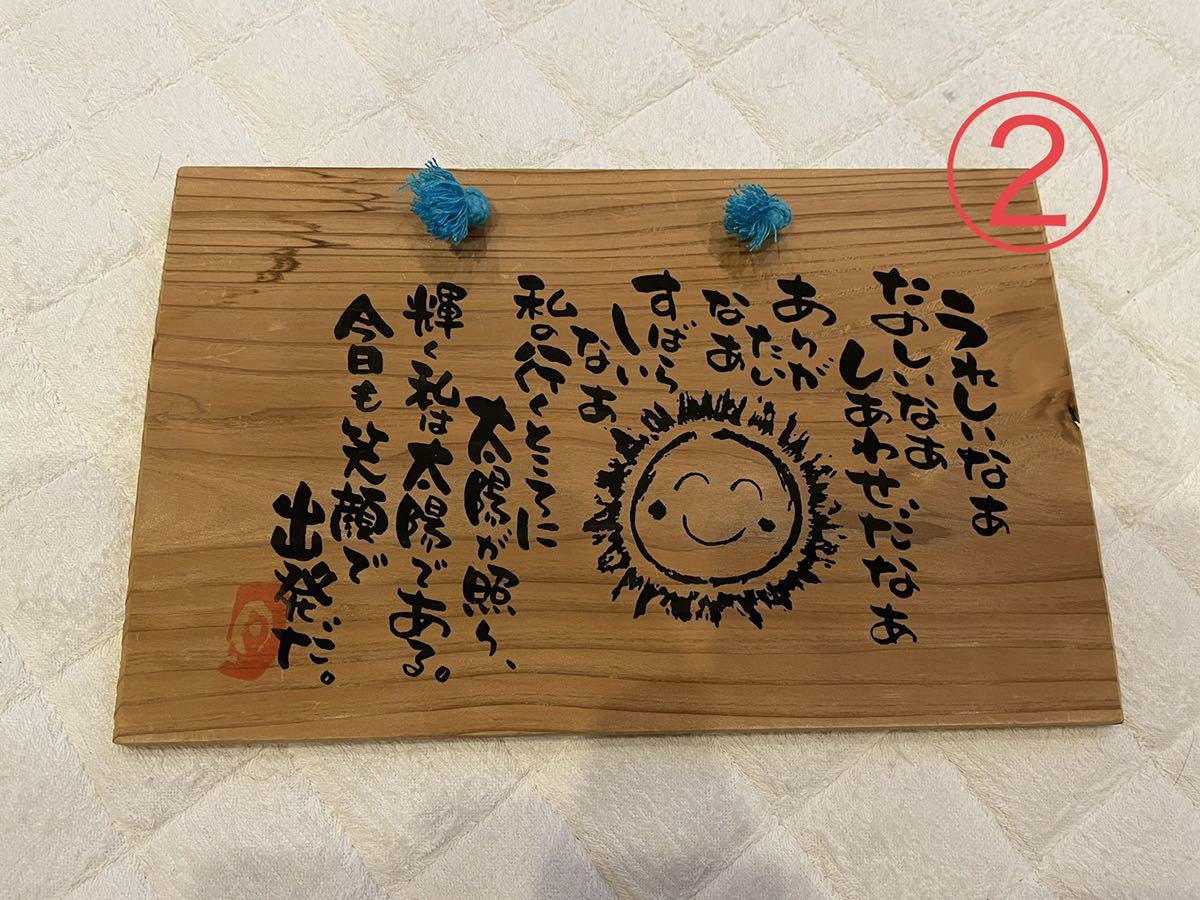 ②
うれしいなぁ
たのしいなぁ
しあわせだなぁ
ありが
たい
なぁ
すばら
しい
なぁ
私の行くところに
太陽が照り、
輝く私は太陽である。
今日も笑顔で
出発だ。